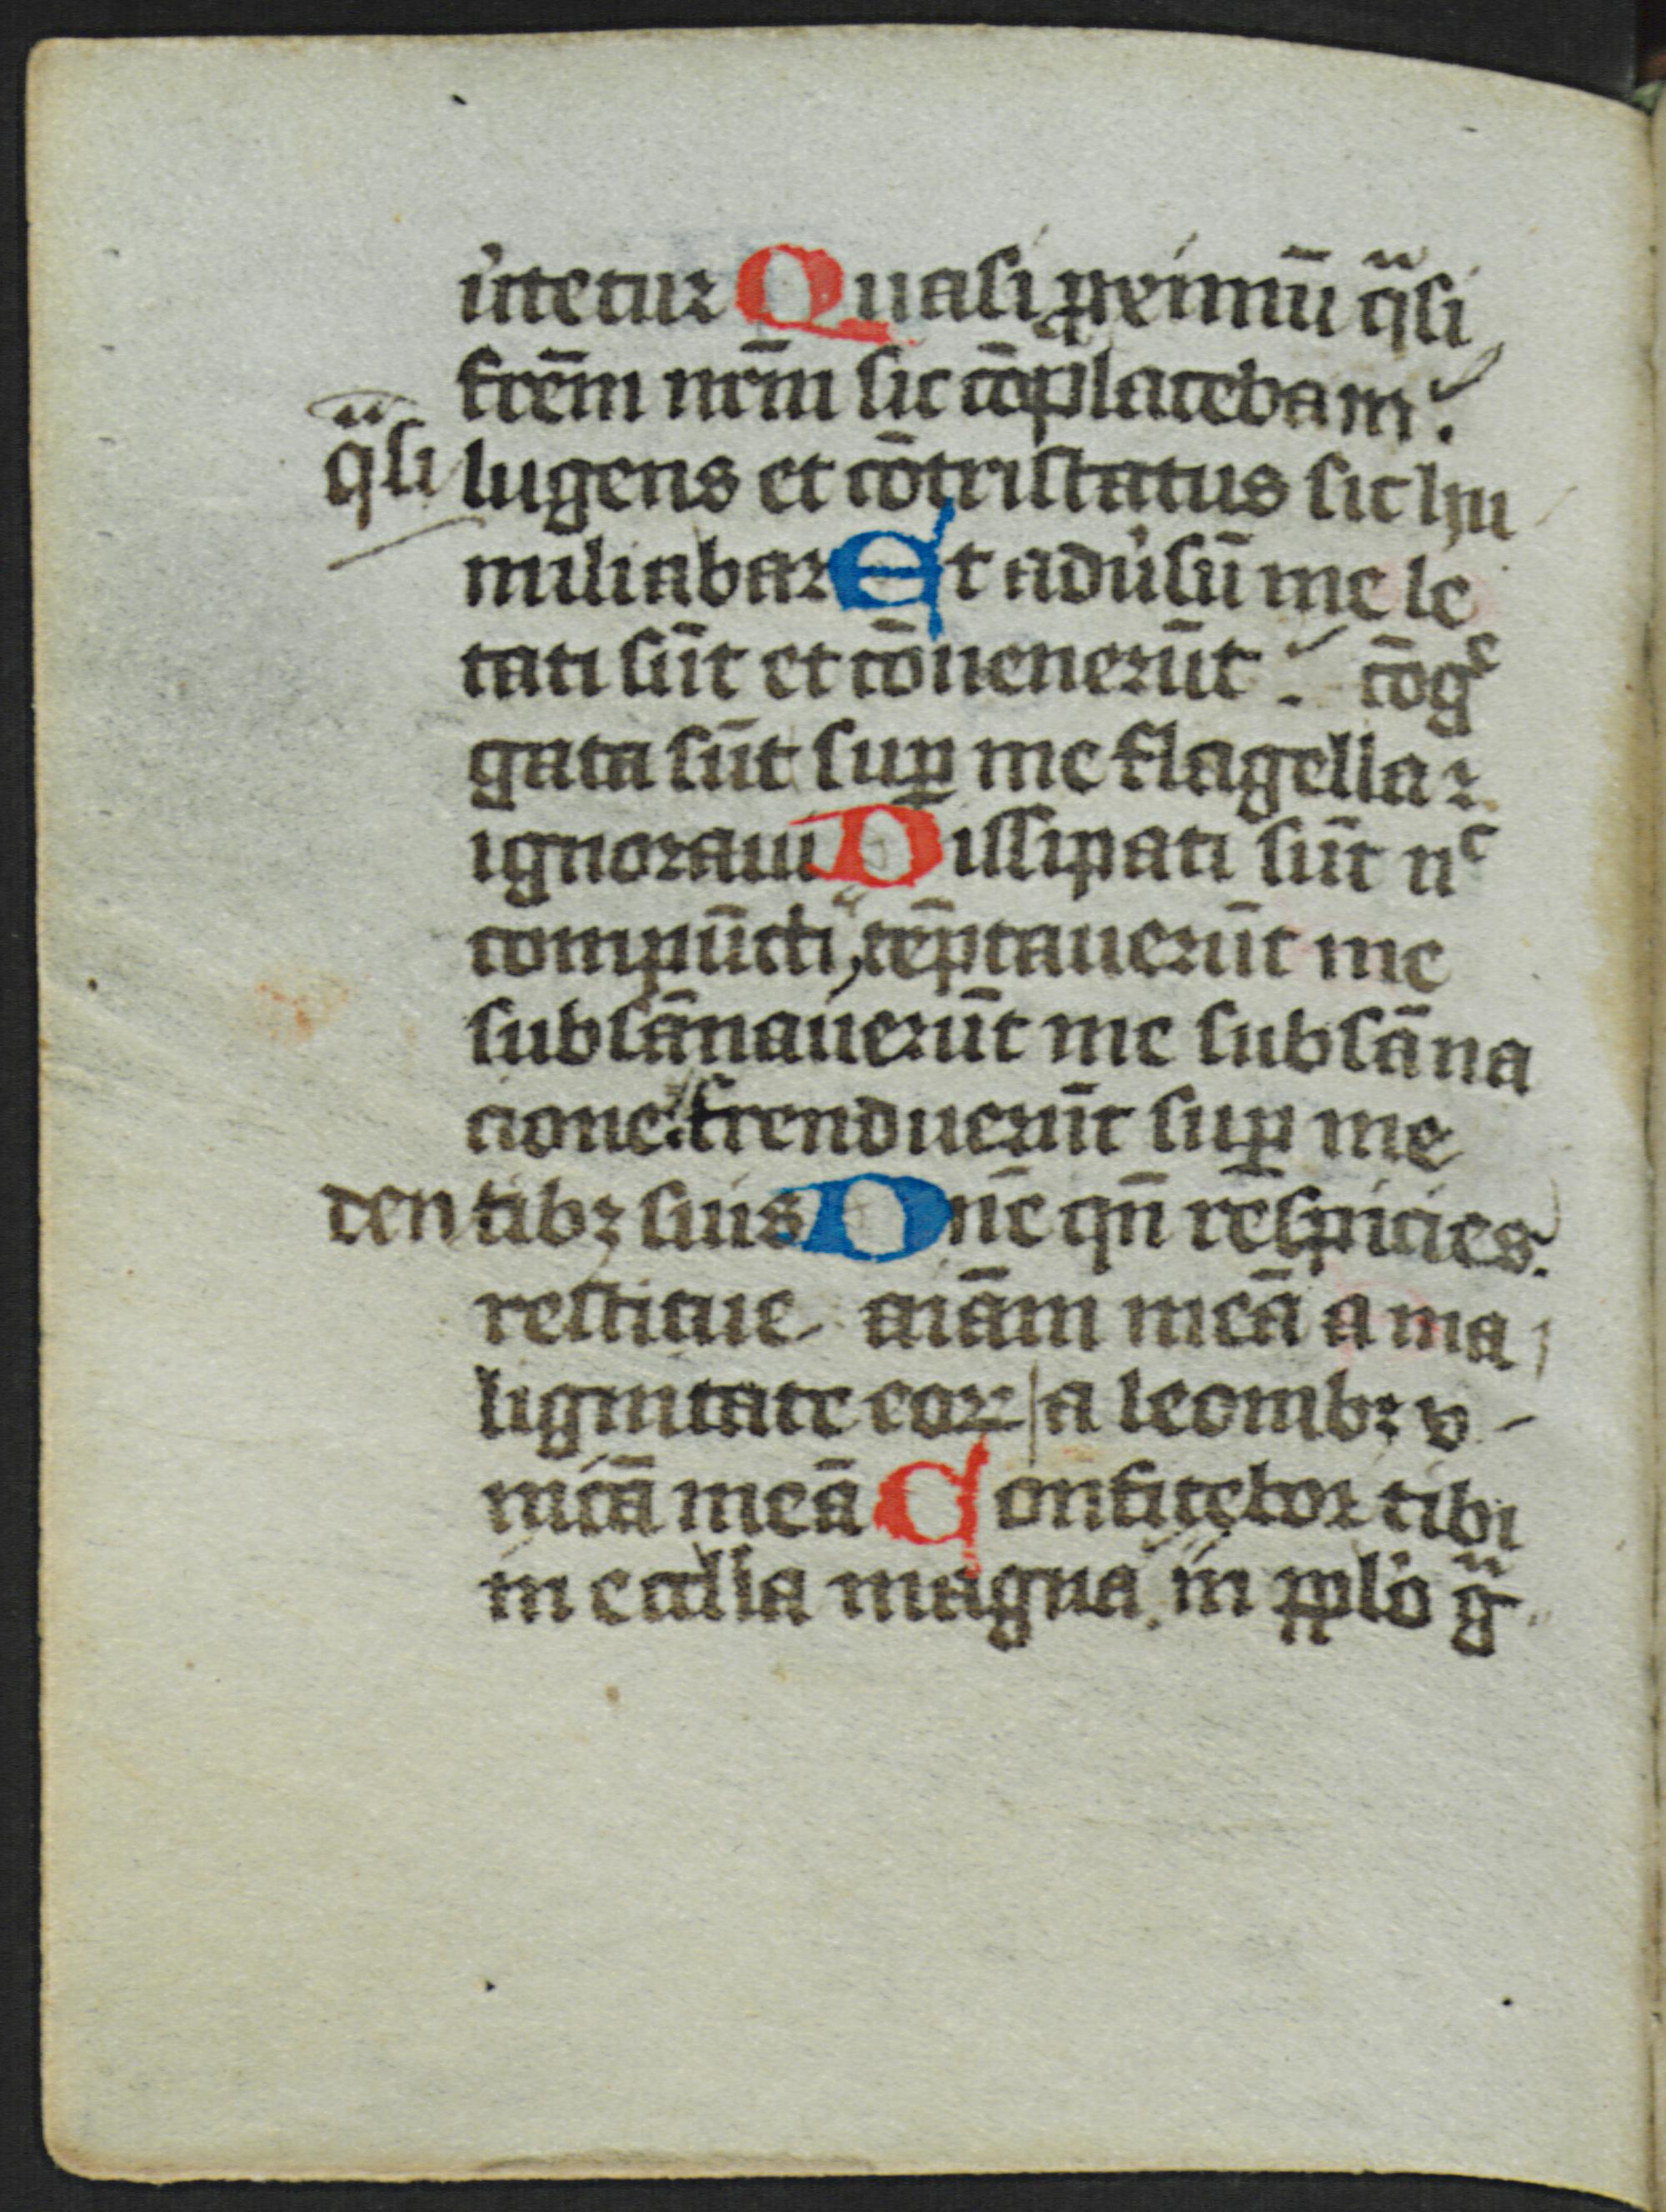 u᷑tetur Quasi ꝓximū qᷓsi
frēm nr̄m sic cōplacebam.
qᷓsi lugens et cōtristatus sic hu
miliabar Et adu᷑sū me le
tati sūt et cōuenerūt. cōgͤ
gata sūt suꝑ me flagella ⁊
ignoraui Dissipati sūt nͨ
compūcti, tēptauerūt me
subsānauerūt me subsāna
cione. frenduerūt suꝑ me
dentibꝫ suis Dn̄e qn̄ respicies.
restitue aīam meā a ma
lignitate eoꝝ a leonibꝫ v
nicā meā Confitebor tibi
in ecclīa magna. in pplo᷑ gᷓ